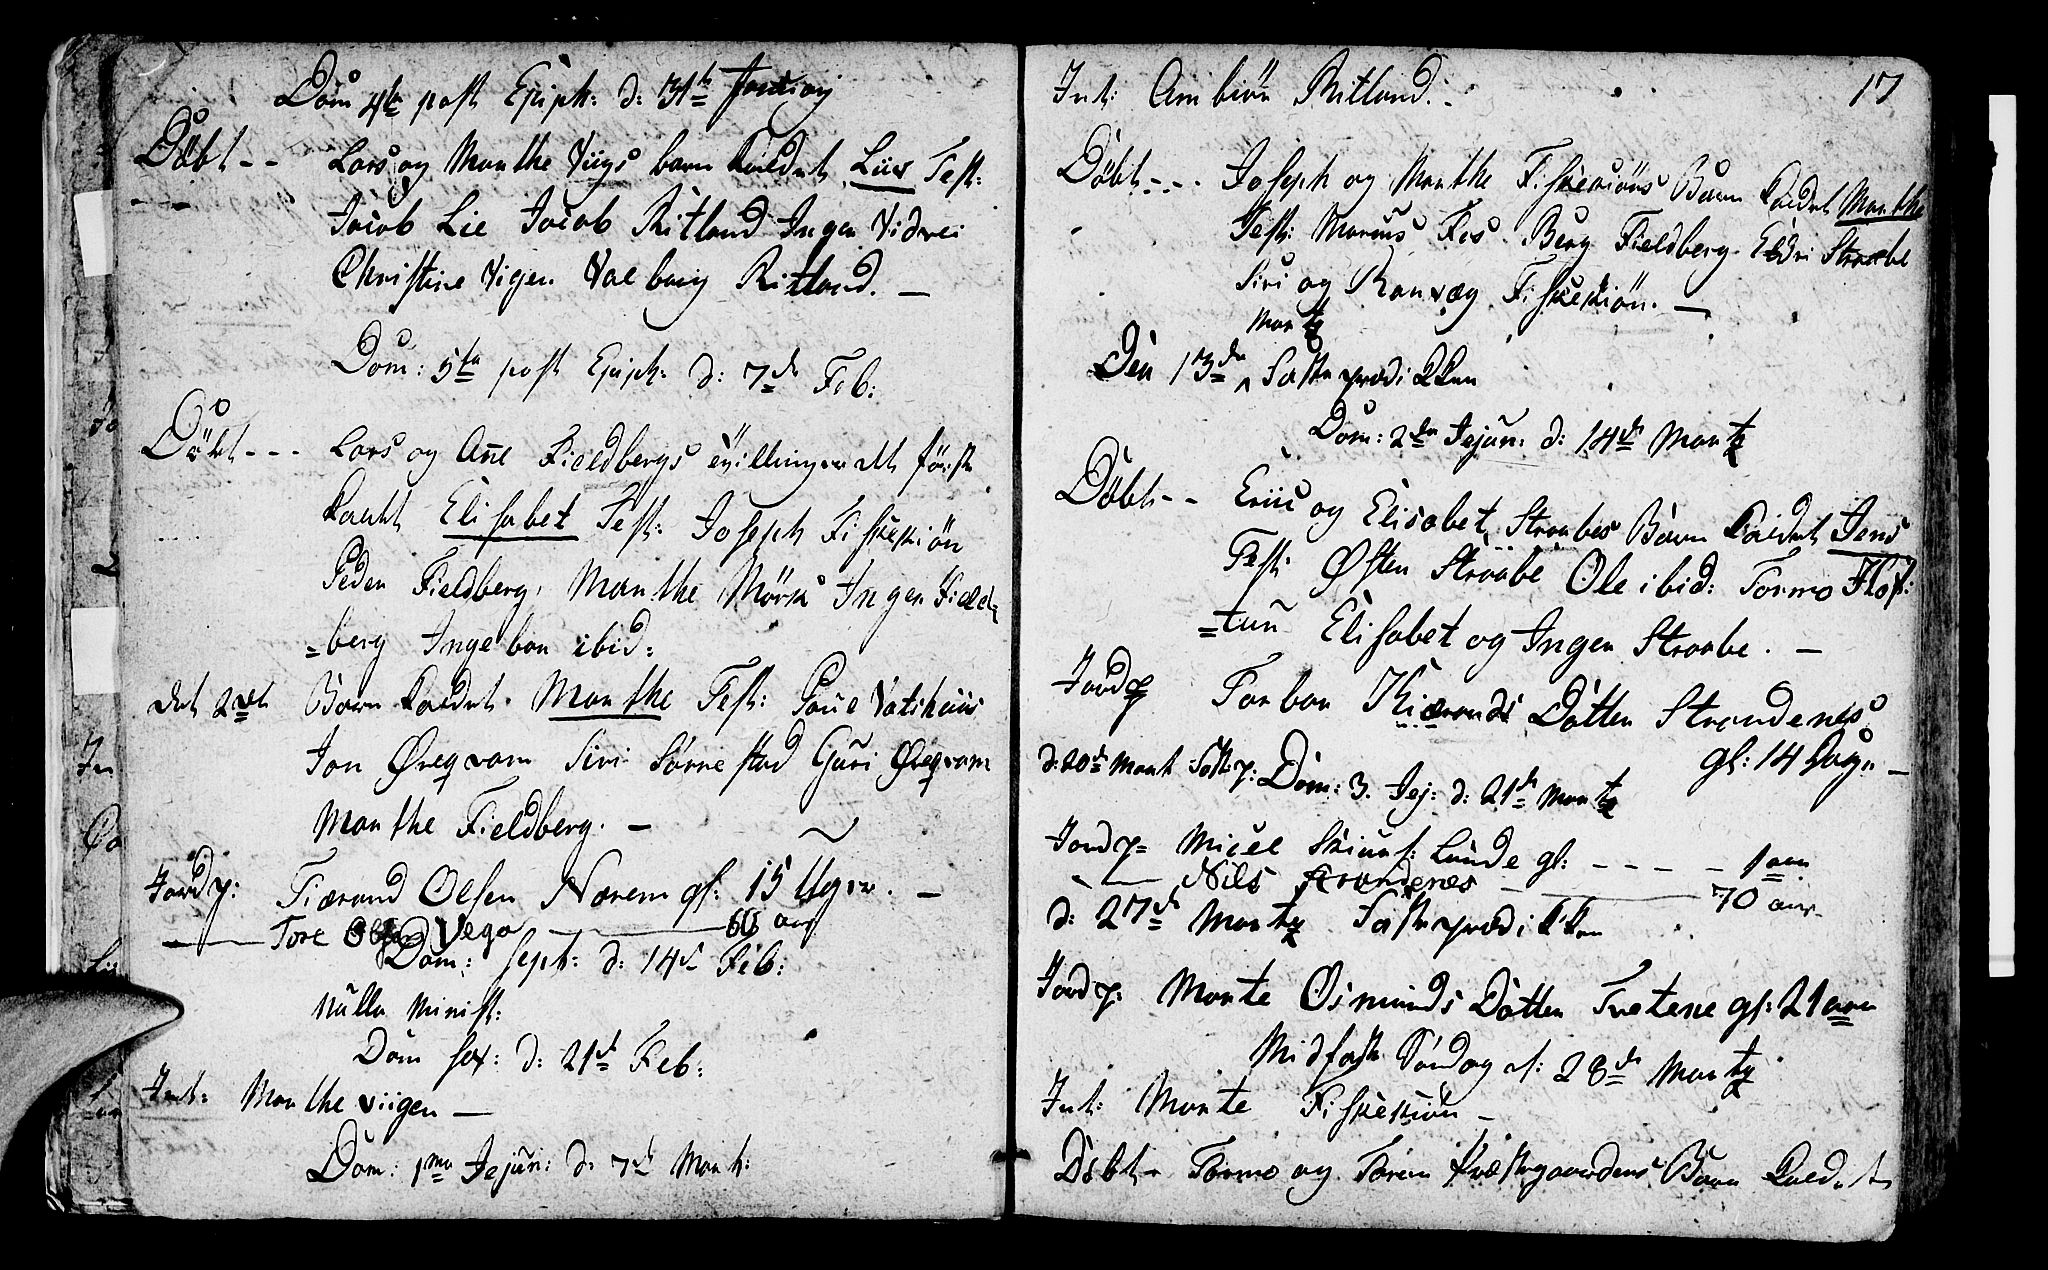 Dom 4te post Epiph: d: 31te Januarj
Döbt -- Lars og Marthe Viigs barn kaldet Liv Test:
Jacob Lie Jacob Ritland Inger Vidvei
Christine Vigen Valborig Ritland. —
Dom: 5ta post Epiph: d: 7de Feb:
Döbt --- Lars og Añe Fieldbergs tvillinger det förste
kaldt Elisabet Test: Joseph Fiskekiön
Peder Fieldberg, Marthe Mörk Inger Field=
=berg Ingebor ibid:
det 2det Barn kaldet Marthe Test: Vatshuus
Jon Øreqvam Siri Sörrestad Guri Øreqvam
Marthe Fieldberg. —
Jordp: Tiærand Olsen Nærem gl: 15 Uger. —
—— Tore Vega —— 60 aar
Dom: Sept: d: 14de Feb:
Nulla Minist:
Dom sex: d: 21de Feb:
Int: Marthe Viigen —
Dom: 1ma Jejun: d: 7de Mart:
17
Int: Ambiör Ritland.
Döbt --- Joseph og Marthe Fiskekiöns Barn kaldet Marthe
Test: Marcus Fos. Berg Fieldberg. Eldri Straabe
Siri og Ranvæg Fiskekiön. —
Martz
Den 13de ^ Fasteprædikken
Dom: 2den Jejun: d: 14de Martz
Döbt -- Eric og Elisabet Straabes Barn kaldet Jens
Test: Østen Straabe Ole ibid: Tormo Flos:
=tun Elisabet og Inger Straabe. —
Jordp Torbor Kiærands Dotter Strandenes
gl: 14 Dage —
d: 20de Mart Fastp: Dom: 3. Jej: d: 21de Martz
Jordp= Micel Skiuls: Lunde gl: ---- 1 aar
—— Nils Strandenes —— 70 aar
d: 27de Martz Fasteprædikken
Jordp: Marte Osmunds Dotter Tvetene gl: 21 aar
Midfaste Söndag d: 28de Martz
Int: Marte Fiskekiön —
Döbt - Tormo og Toren Præstegaardens Barn kaldet